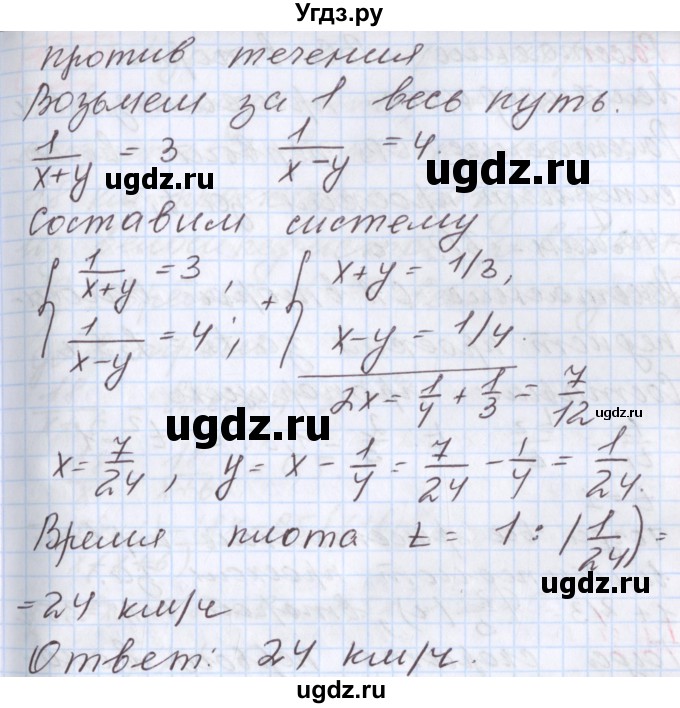 Угдз.ру
против течения
Возьмем за 1 весь путь.
1/(x+y) = 3   1/(x-y) = 4.
ugdz.ru ugdz.ru
Составим систему
{ 1/(x+y) = 3, + { x+y = 1/3,
1/(x-y) = 4; x-y = 1/4.
ugdz.ru
2x = 1/4 + 1/3 = 7/12
ugdz.ru
ugdz.ru
x = 7/24, y = x - 1/4 = 7/24 - 1/4 = 1/24.
Время плота t = 1 : (1/24) =
ugdz.ru
= 24 км/ч
ugdz.ru
Ответ: 24 км/ч.
ugdz.ru